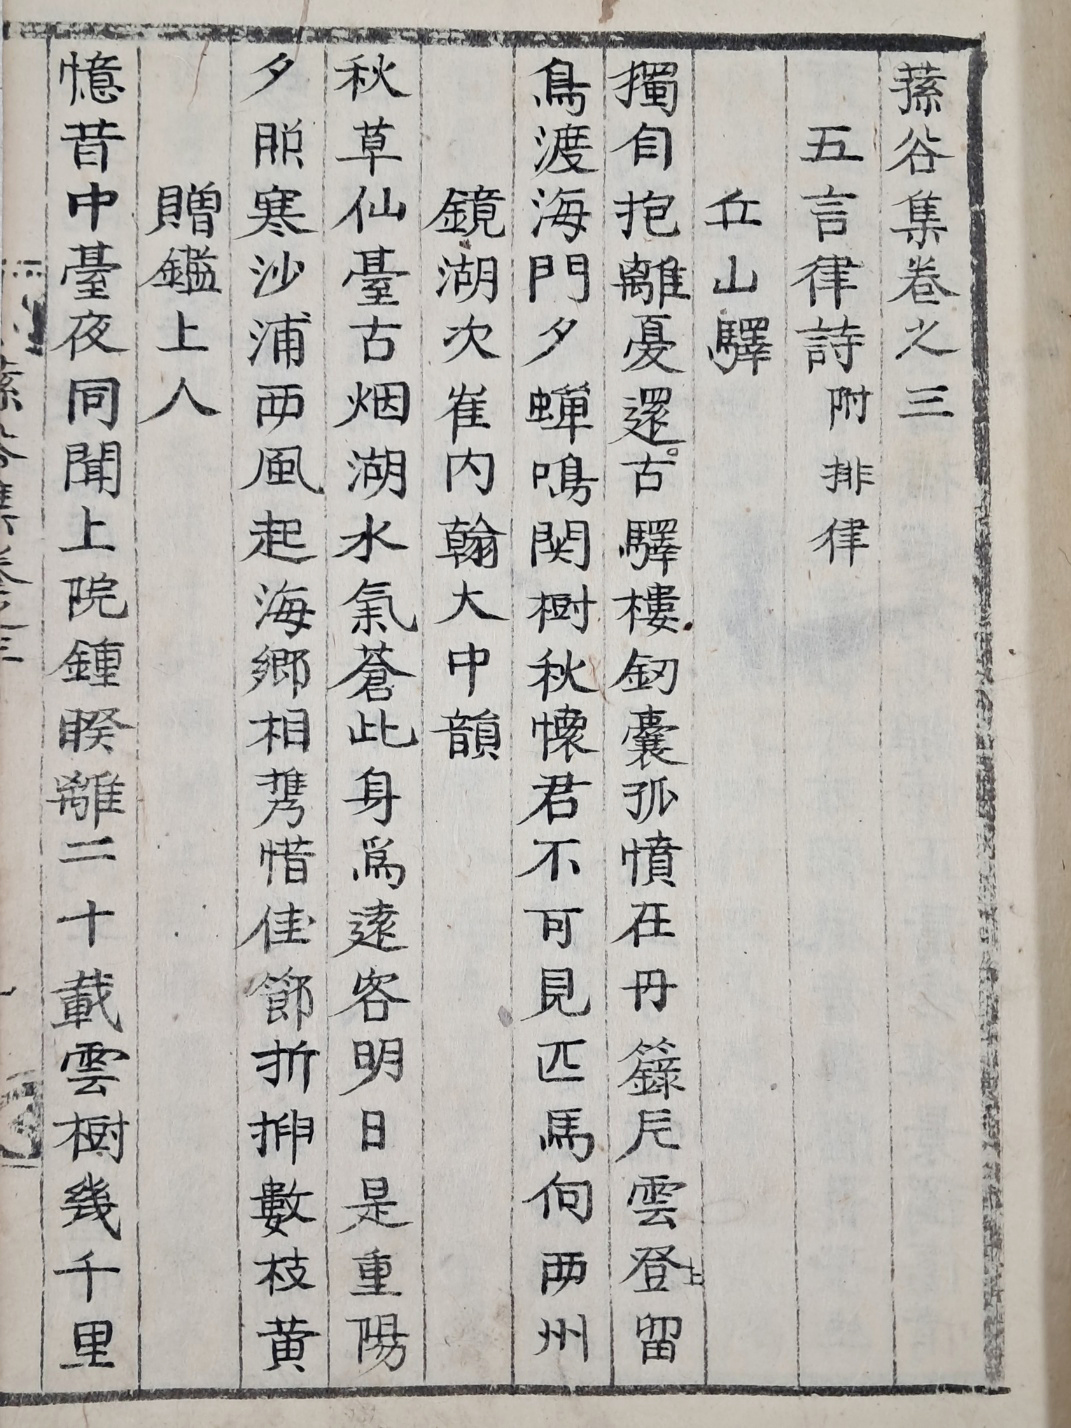 蓀谷集卷之三
五言律詩 附排律
丘山驛
獨自抱離憂還古驛樓釰囊孤憤在丹籙片雲登上留
鳥渡海門夕蟬鳴関樹秋懷君不可見匹馬向西州
鏡湖次崔内翰大中韻
秋草仙臺古烟湖水氣蒼此身爲遠客明日是重陽
夕眺寒沙浦西風起海鄉相携惜佳節折揷數枝黄
贈鑑上人
憶昔中臺夜同聞上院鍾睽離二十載雲樹幾千里
蓀谷集卷之三